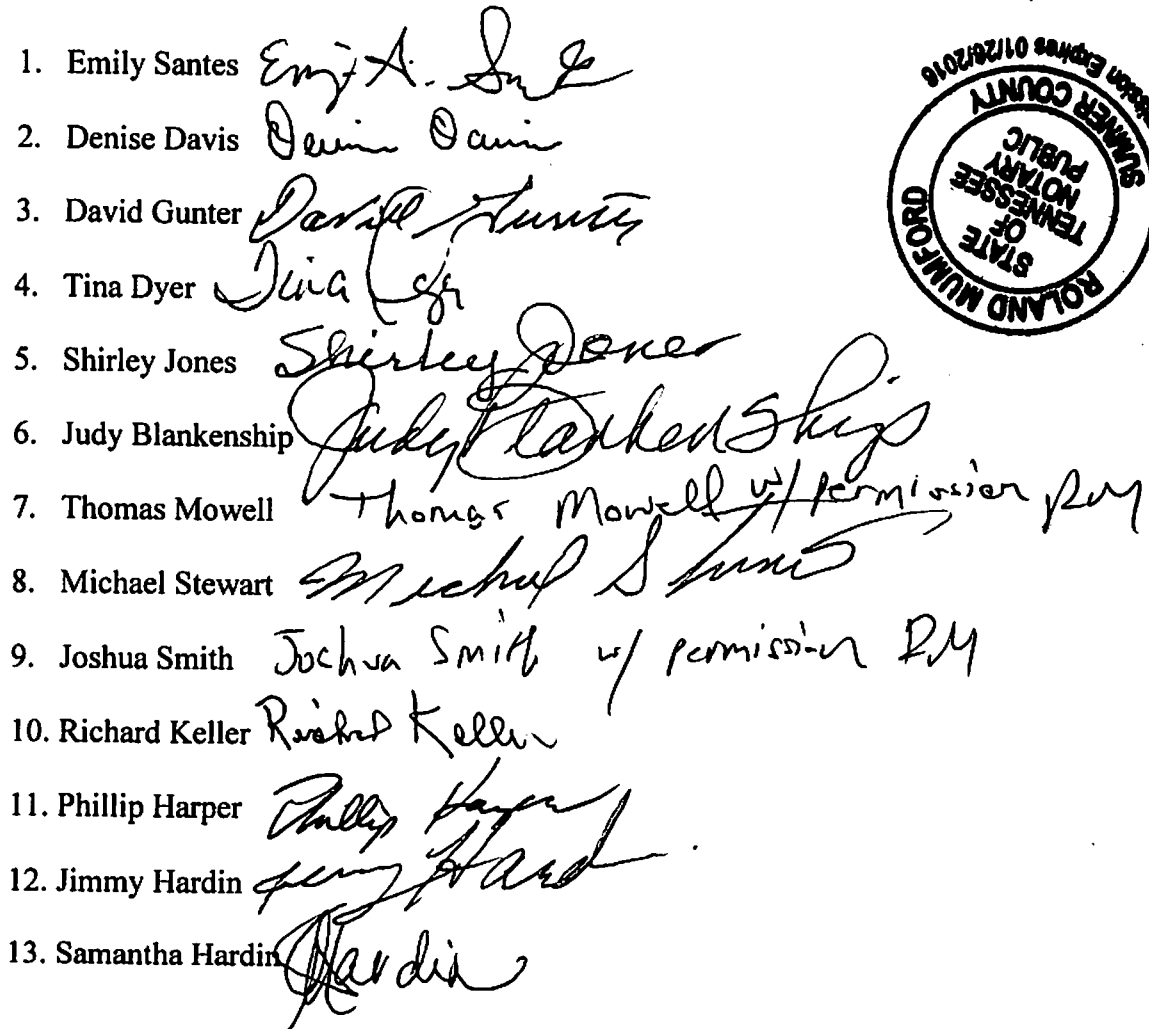 1. Emily Santes Emily A. 
2. Denise Davis Denise Davis
3. David Gunter David Gunter
4. Tina Dyer Tina
5. Shirley Jones Shirley Jones
6. Judy Blankenship Judy Blankenship
7. Thomas Mowell Thomas Mowell w/ permission RM
8. Michael Stewart Michael
9. Joshua Smith Joshua Smith w/ permission RM
10. Richard Keller Richard Keller
11. Phillip Harper Phillip Harper
12. Jimmy Hardin
13. Samantha Hardin Hardin
ROLAND MUMFORD
STATE
OF
TENNESSEE
NOTARY
PUBLIC
SUMNER COUNTY
Expires 01/26/2016